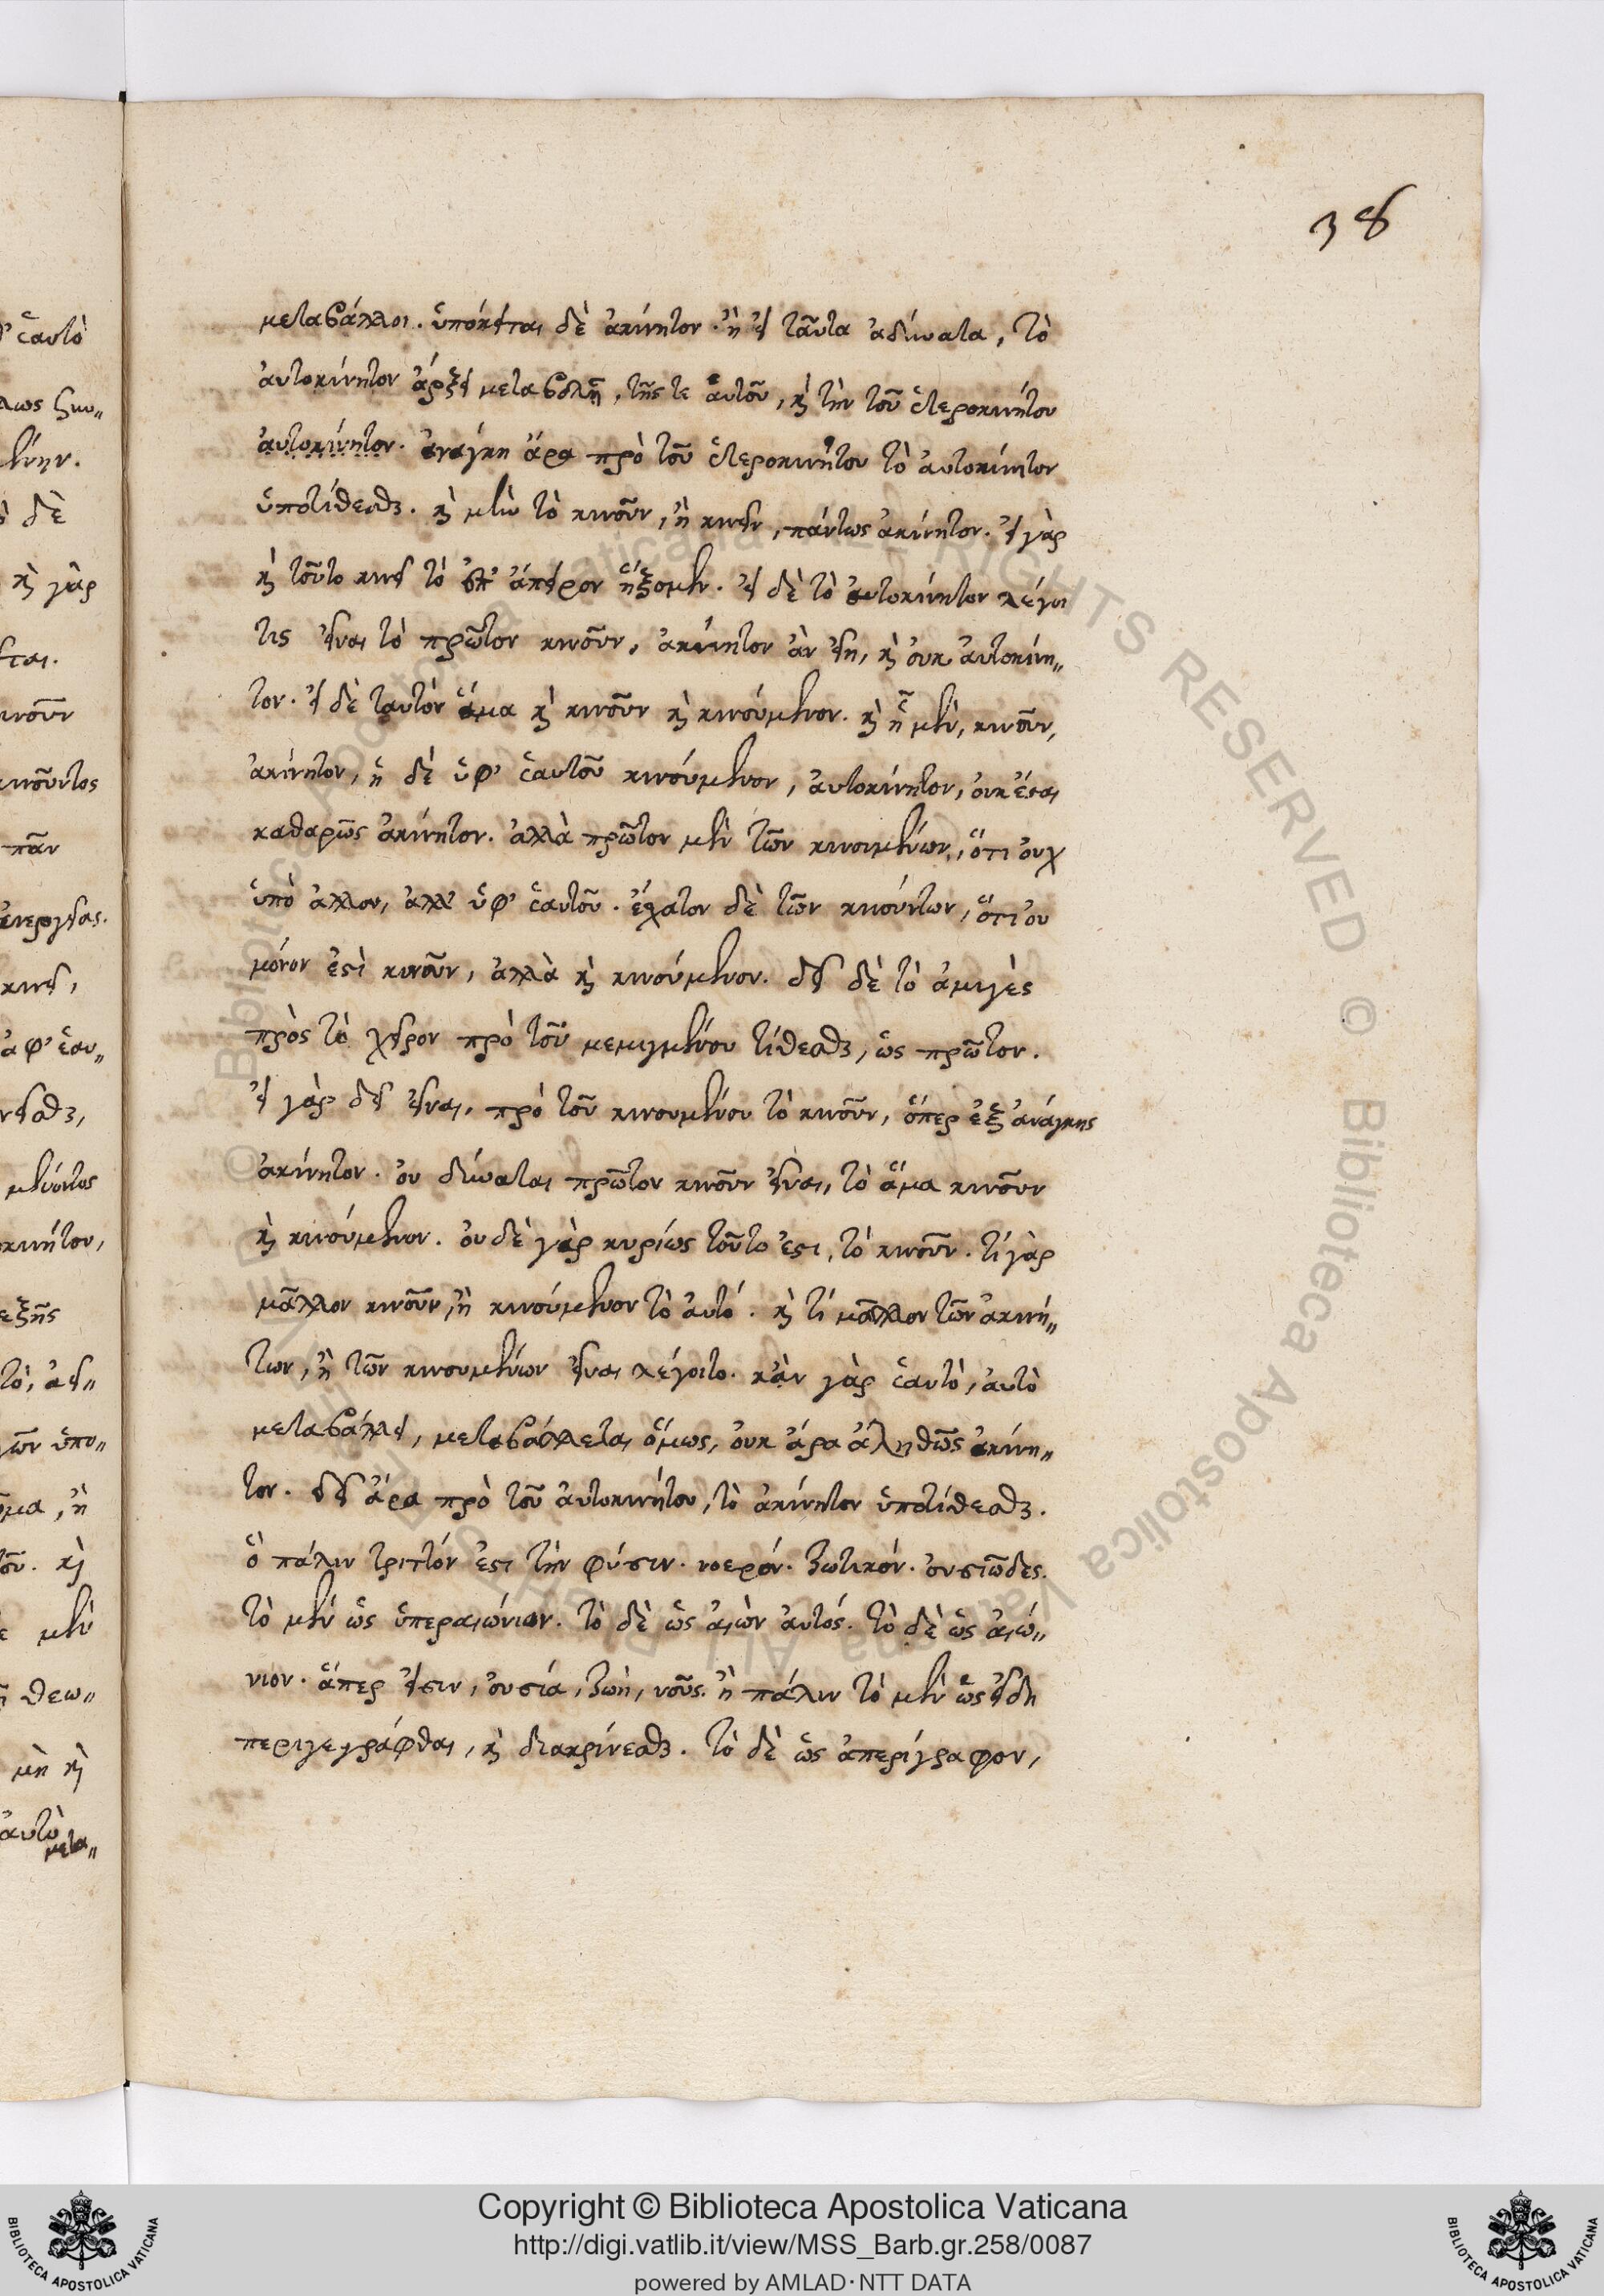 38
μεταβάλλοι. ὑπόκειται δὲ ἀκίνητον. ἢ εἰ ταῦτα ἀδύνατα, τὸ
αὐτοκίνητον ἄρξει μεταβολῆς, τῆς τε ἑαυτοῦ, καὶ τὴν τοῦ ἑτεροκινήτου
αὐτοκίνητον. ἀνάγκη ἄρα πρὸ τοῦ ἑτεροκινήτου τὸ αὐτοκίνητον
ὑποτίθεσθαι. καὶ μὴν τὸ κινοῦν, ἢ κινεῖν, πάντως ἀκίνητον. εἰ γὰρ
καὶ τοῦτο κινεῖ τὸ ἐπ' ἄπειρον ἥξομεν. εἰ δὲ τὸ αὐτοκίνητον λέγοι
τις εἶναι τὸ πρῶτον κινοῦν, ἀκίνητον ἂν εἴη, καὶ οὐκ αὐτοκίνη„
τον. εἰ δὲ ταυτόν ἅμα καὶ κινοῦν καὶ κινούμενον. καὶ ᾗ μὲν, κινοῦν,
ἀκίνητον, ἡ δὲ ὑφ' ἑαυτοῦ κινούμενον, αὐτοκίνητον, οὐκ ἔσται
καθαρῶς ἀκίνητον. ἀλλὰ πρῶτον μὲν τῶν κινουμένων, ὅτι οὐχ
ὑπὸ ἄλλου, ἀλλ' ὑφ' ἑαυτοῦ. ἔσχατον δὲ τῶν κινούντων, ὅτι οὐ
μόνον ἐστὶ κινοῦν, ἀλλὰ καὶ κινούμενον. δεῖ δὲ τὸ ἀμιγὲς
πρὸς τὸ χεῖρον πρὸ τοῦ μεμιγμένου τίθεσθαι, ὡς πρῶτον.
εἰ γὰρ δεῖ εἶναι, πρὸ τοῦ κινουμένου τὸ κινοῦν, ὅπερ ἐξ ἀνάγκης
ἀκίνητον. οὐ δύναται πρῶτον κινοῦν εἶναι, τὸ ἅμα κινοῦν
καὶ κινούμενον. οὐδὲ γὰρ κυρίως τοῦτο ἐστι, τὸ κινοῦν. τί γὰρ
μᾶλλον κινοῦν, ἢ κινούμενον τὸ αὐτό. καὶ τί μᾶλλον τῶν ἀκινή„
των, ἢ τῶν κινουμένων εἶναι λέγοιτο. κἂν γὰρ ἑαυτὸ, αὐτὸ
μεταβάλλει, μεταβάλλεται ὅμως, οὐκ ἄρα ἀληθῶς ἀκίνη„
τον. δεῖ ἄρα πρὸ τοῦ αὐτοκινήτου, τὸ ἀκίνητον ὑποτίθεσθαι.
ὃ πάλιν τριττόν ἐστι τὴν φύσιν. νοερόν. ζωτικόν. οὐσιῶδες.
τὸ μὲν ὡς ὑπεραιώνιον. τὸ δὲ ὡς αἰὼν αὐτός. τὸ δὲ ὡς αἰώ„
νιον. ἅπερ εἰσιν, οὐσία, ζωή, νοῦς. ἢ πάλιν τὸ μὲν ὡς εἴδη
περιγεγράφθαι, καὶ διακρίνεσθαι. τὸ δὲ ὡς ἀπερίγραφον,
Copyright © Biblioteca Apostolica Vaticana
http://digi.vatlib.it/view/MSS_Barb.gr.258/0087
powered by AMLAD·NTT DATA